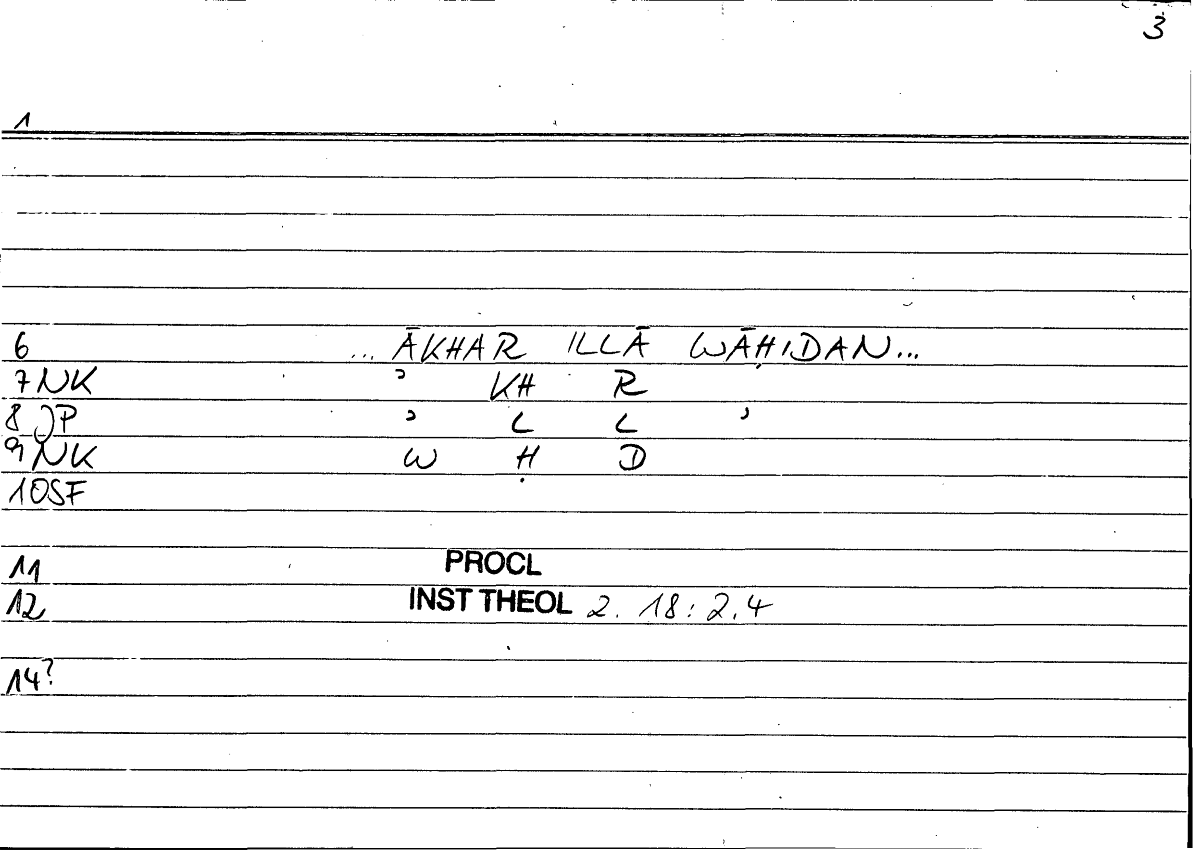 3
1
6 ... ĀKHAR ILLĀ WĀḤIDAN...
7 NK ʾ KH R
8 JP ʾ L L ʾ
9 NK W Ḥ D
10 SF
11 PROCL
12 INST THEOL 2. 18:2.4
14?